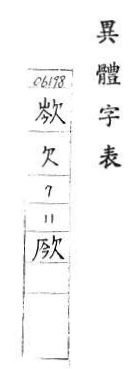 異體字表
06198
欠
7
11